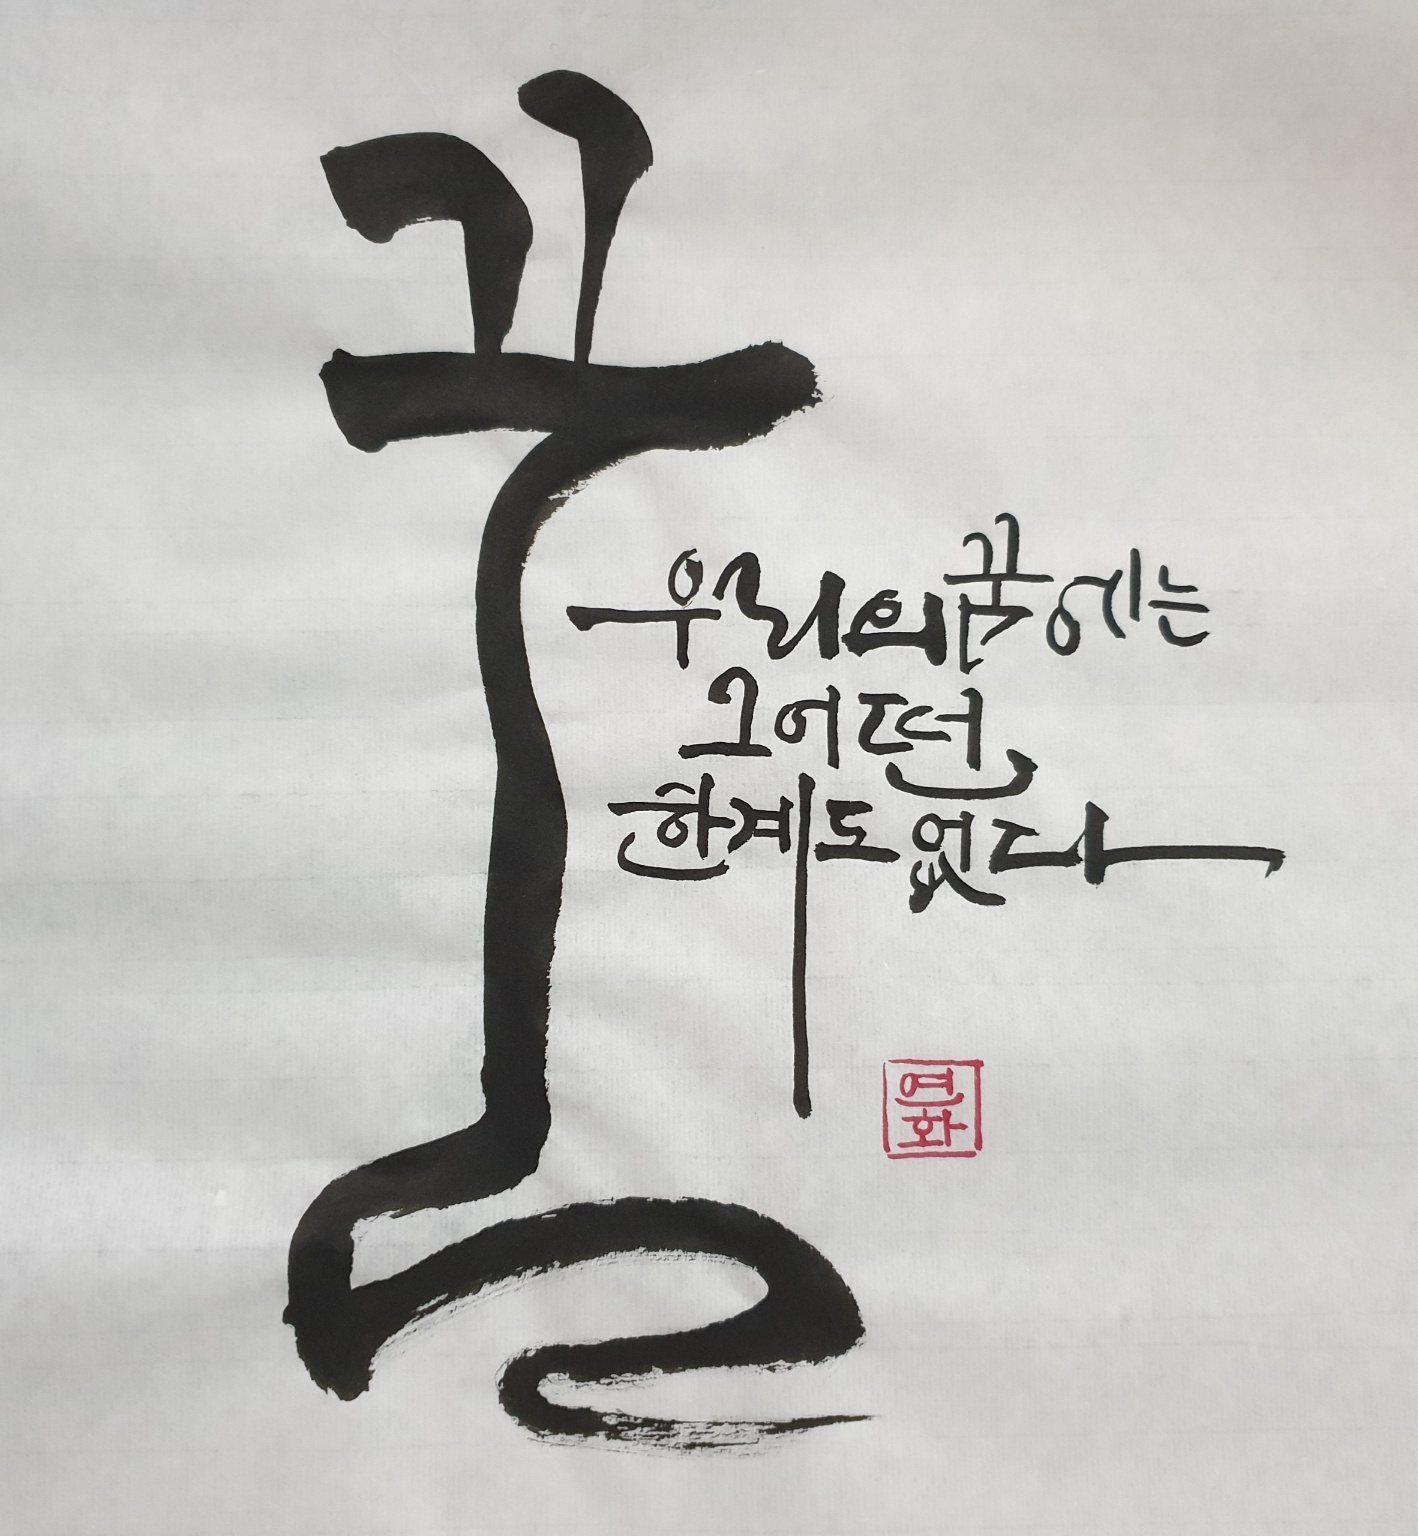 꿈
우리의 꿈에는
그 어떤
한계도 없다
연화